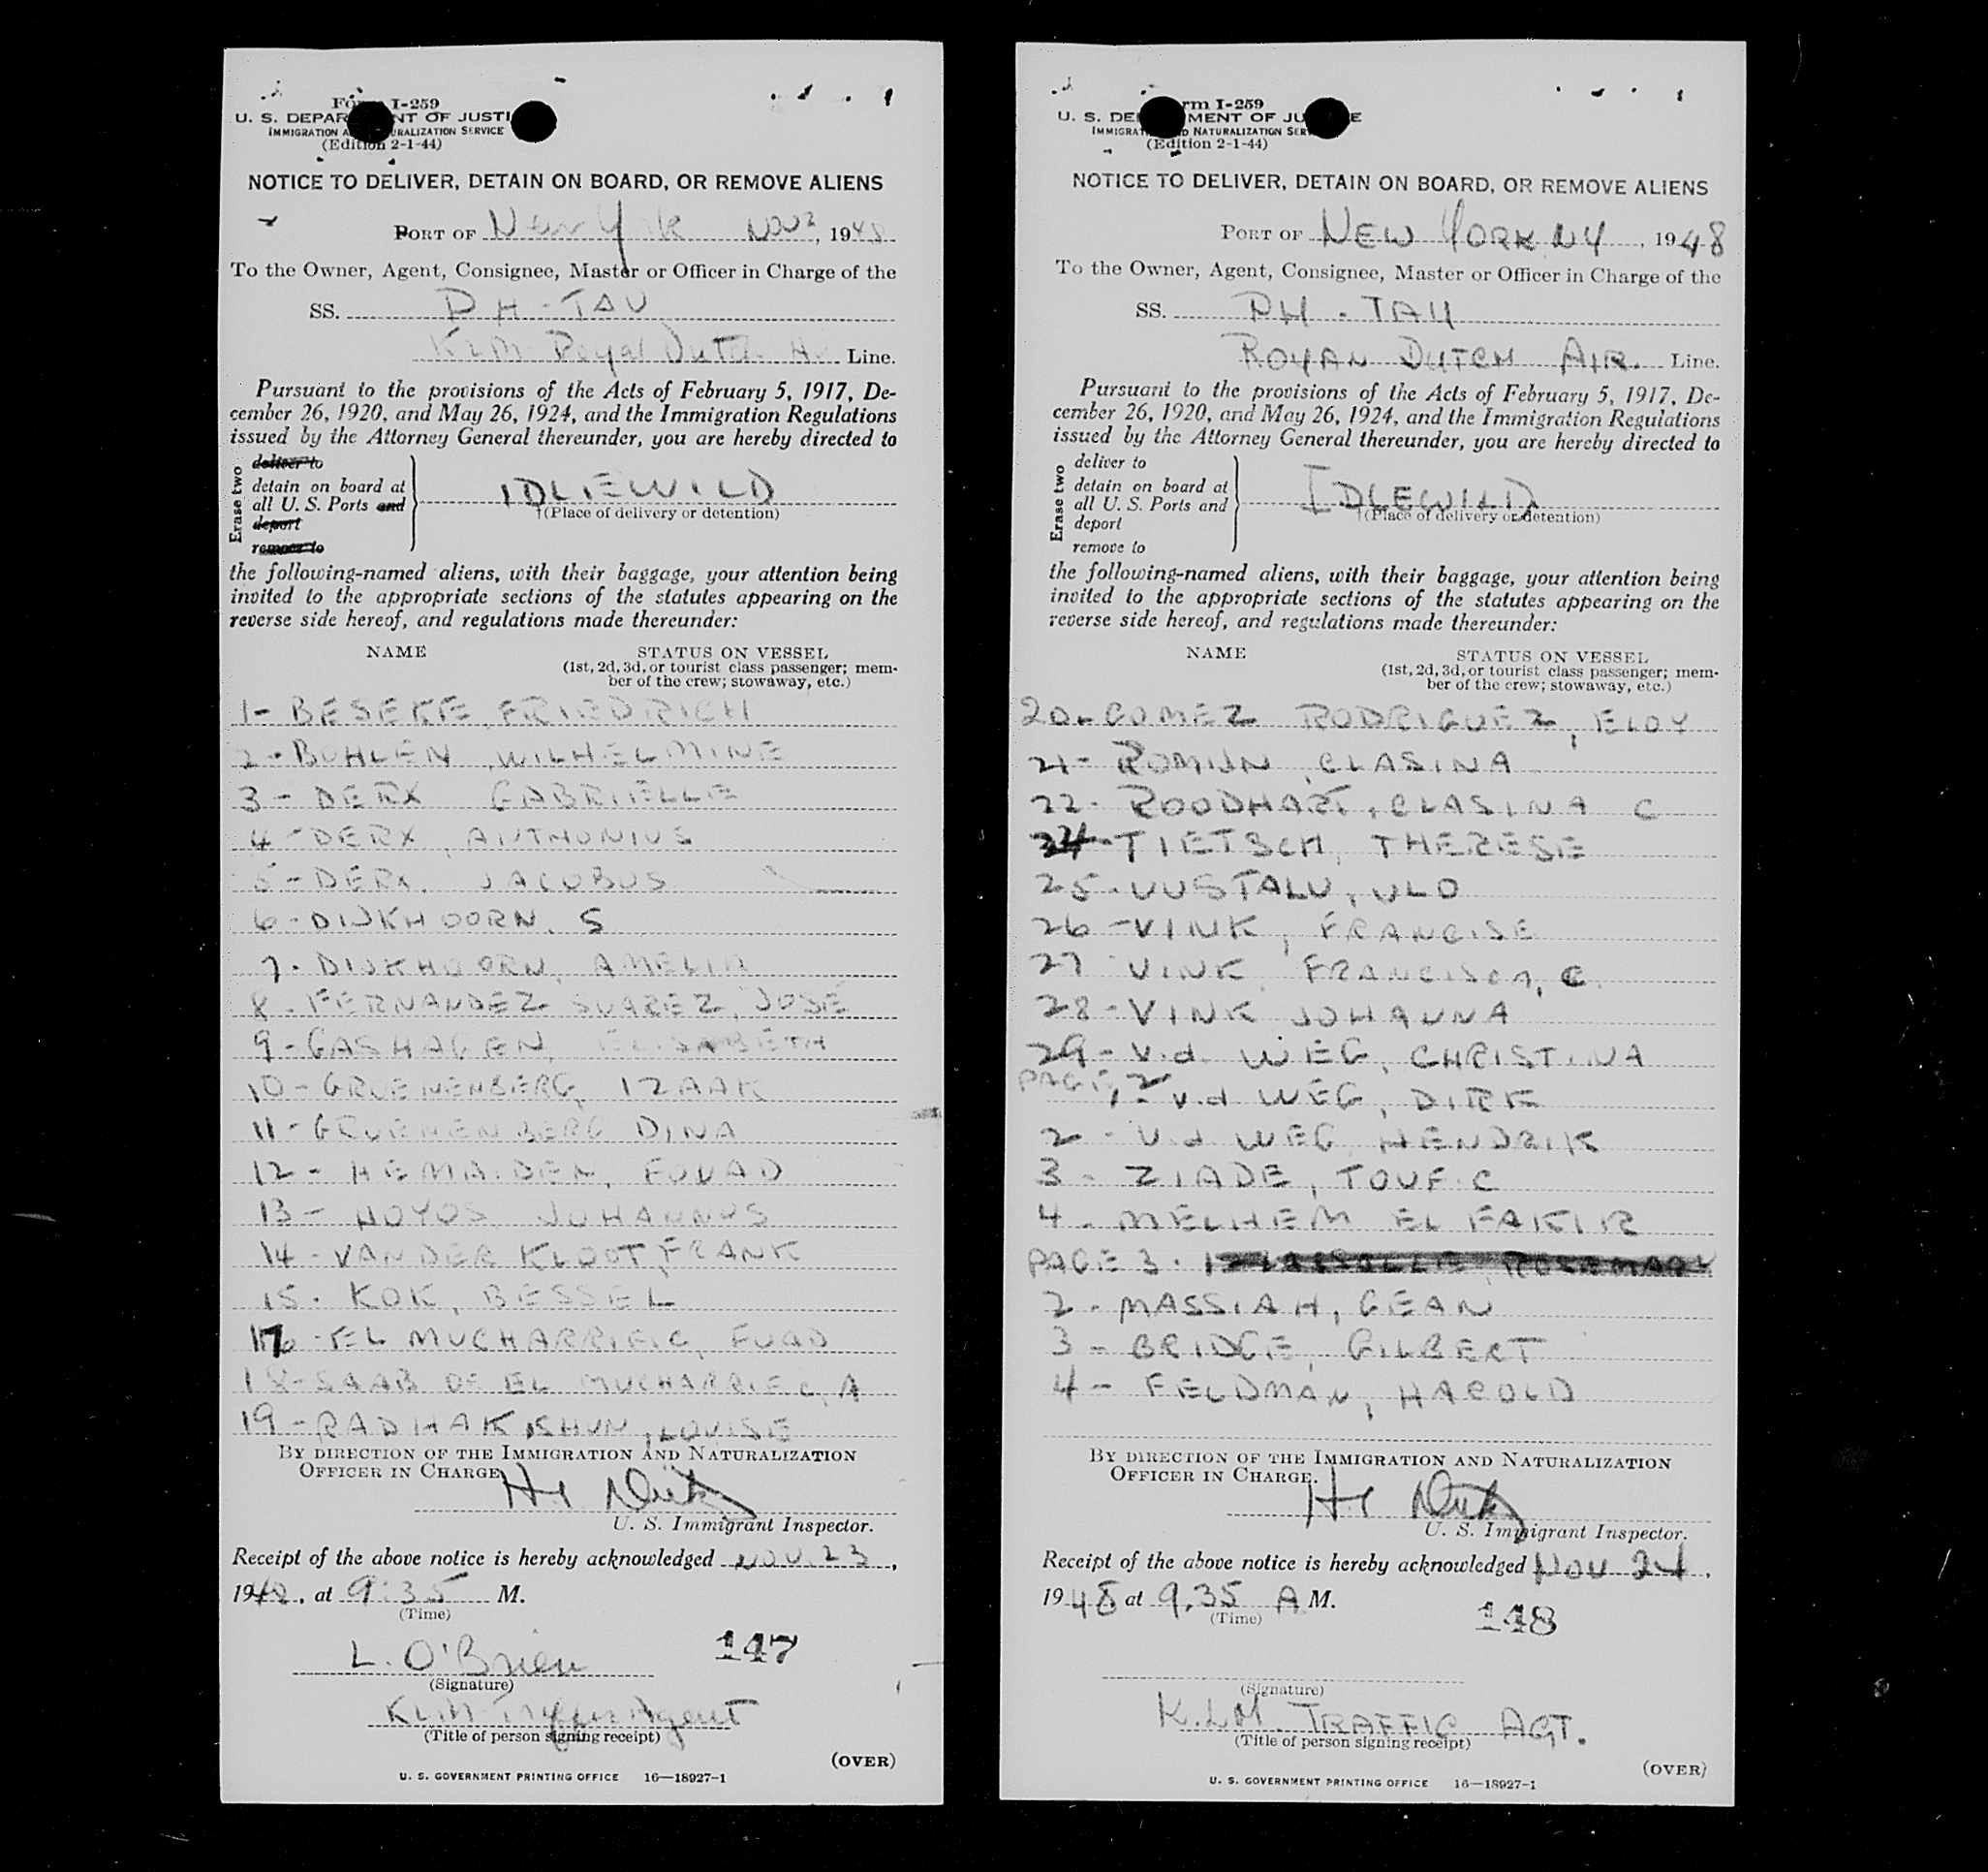 Form I-259
U. S. DEPARTMENT OF JUSTICE
IMMIGRATION AND NATURALIZATION SERVICE
(Edition 2-1-44)
NOTICE TO DELIVER, DETAIN ON BOARD, OR REMOVE ALIENS
PORT OF New York Nov 2, 1948
To the Owner, Agent, Consignee, Master or Officer in Charge of the
SS. PH-TAU
KLM Royal Dutch Line.
Pursuant to the provisions of the Acts of February 5, 1917, De-
cember 26, 1920, and May 26, 1924, and the Immigration Regulations
issued by the Attorney General thereunder, you are hereby directed to
Erase two
deliver to
detain on board at
all U. S. Ports and
deport
remove to
IDLEWILD
†(Place of delivery or detention)
the following-named aliens, with their baggage, your attention being
invited to the appropriate sections of the statutes appearing on the
reverse side hereof, and regulations made thereunder:
NAME STATUS ON VESSEL
(1st, 2d, 3d, or tourist class passenger; mem-
ber of the crew; stowaway, etc.)
1- BESEKE, FRIEDRICH
2- BUHLEN, WILHELMINE
3- DERX GABRIELLE
4- DERX, ANTHONIUS
5- DERX, JACOBUS
6- DIJKHOORN, S
7. DIJKHOORN, AMELIA
8. FERNANDEZ SUAREZ, JOSE
9- GASHAGEN, ELISABETH
10- GROENENBERG, IZAAK
11- GROENENBERG DINA
12- FOUAD
13- HOYOS, JOHANNUS
14- VAN DER KLOOT, FRANK
15. KOK, BESSEL
17- EL MUCHARRIFIC, FUAD
18- SAAB OF EL MUCHARRIEC, A
19- RADHAKISHUN, LOUISE
BY DIRECTION OF THE IMMIGRATION AND NATURALIZATION
OFFICER IN CHARGE,
U. S. Immigrant Inspector.
Receipt of the above notice is hereby acknowledged NOV. 23,
1948, at 9:35 M.
(Time)
L. O'Brien 147
(Signature)
KLM Traffic Agent
(Title of person signing receipt)
(OVER)
U. S. GOVERNMENT PRINTING OFFICE 16—18927-1
Form I-259
U. S. DEPARTMENT OF JUSTICE
IMMIGRATION AND NATURALIZATION SERVICE
(Edition 2-1-44)
NOTICE TO DELIVER, DETAIN ON BOARD, OR REMOVE ALIENS
PORT OF NEW YORK NY, 1948
To the Owner, Agent, Consignee, Master or Officer in Charge of the
SS. PH-TAU
ROYAN DUTCH AIR. Line.
Pursuant to the provisions of the Acts of February 5, 1917, De-
cember 26, 1920, and May 26, 1924, and the Immigration Regulations
issued by the Attorney General thereunder, you are hereby directed to
Erase two
deliver to
detain on board at
all U. S. Ports and
deport
remove to
IDLEWILD
†(Place of delivery or detention)
the following-named aliens, with their baggage, your attention being
invited to the appropriate sections of the statutes appearing on the
reverse side hereof, and regulations made thereunder:
NAME STATUS ON VESSEL
(1st, 2d, 3d, or tourist class passenger; mem-
ber of the crew; stowaway, etc.)
20- GOMEZ RODRIGUEZ, ELOY
21- ROMIJN, CLASINA
22- ROODHART, CLASINA C
24- TIETSCH, THERESE
25- UUSTALU, ULO
26- VINK, FRANCISE
27 VINK FRANCISCA, C.
28- VINK JOHANNA
29- V.d. WEG, CHRISTINA
PAGE 2
1- v.d WEG, DIRK
2- V.d WEG HENDRIK
3- ZIADE, TOUFIC
4- MELHEM EL FAKIR
PAGE 3. 1- ROSEMARY
2- MASSIAH, GEAN
3- BRIDGE, GILBERT
4- FELDMAN, HAROLD
BY DIRECTION OF THE IMMIGRATION AND NATURALIZATION
OFFICER IN CHARGE.
U. S. Immigrant Inspector.
Receipt of the above notice is hereby acknowledged NOV 24,
1948 at 9.35 A M.
(Time)
148
(Signature)
K.L.M. TRAFFIC AGT.
(Title of person signing receipt)
(OVER)
U. S. GOVERNMENT PRINTING OFFICE 16—18927-1